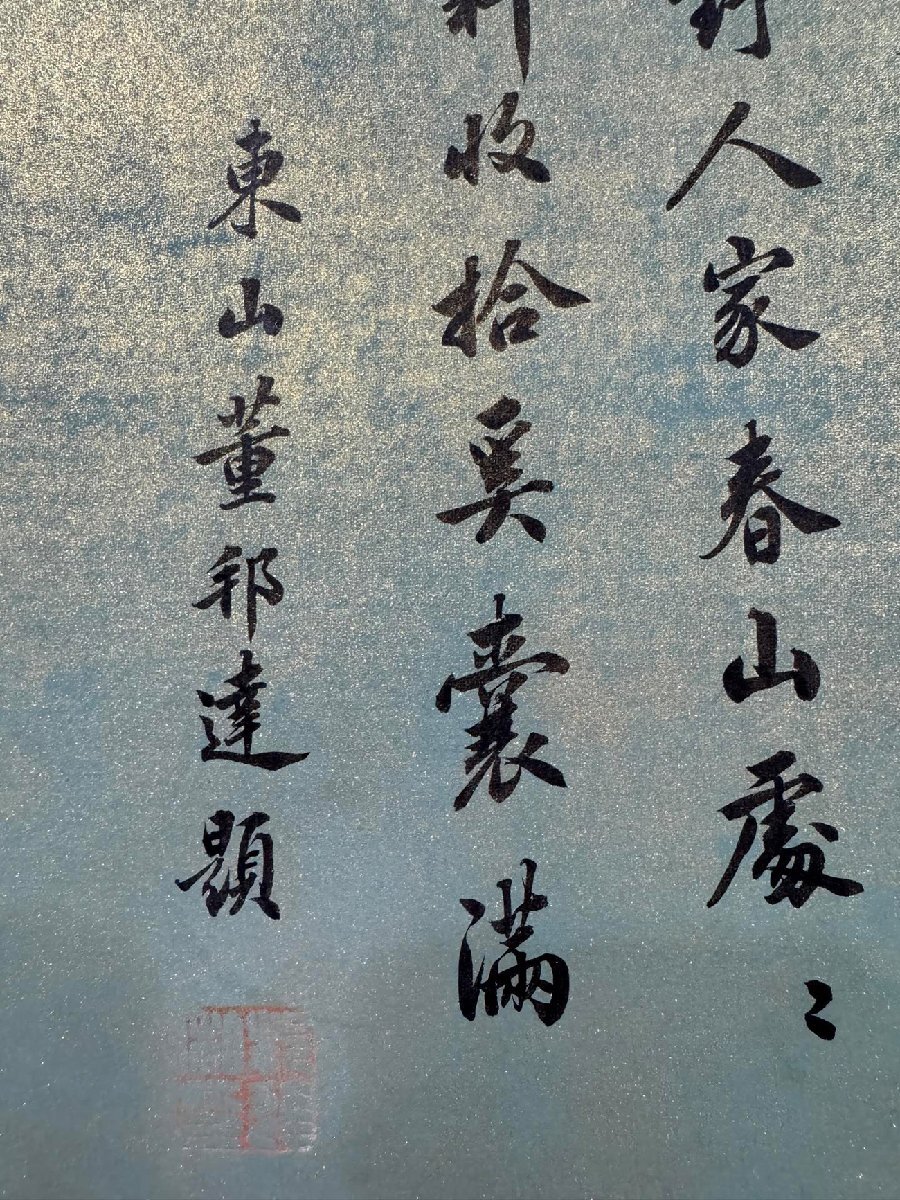 人家春山處〻
收拾奚囊滿
東山董邦達題